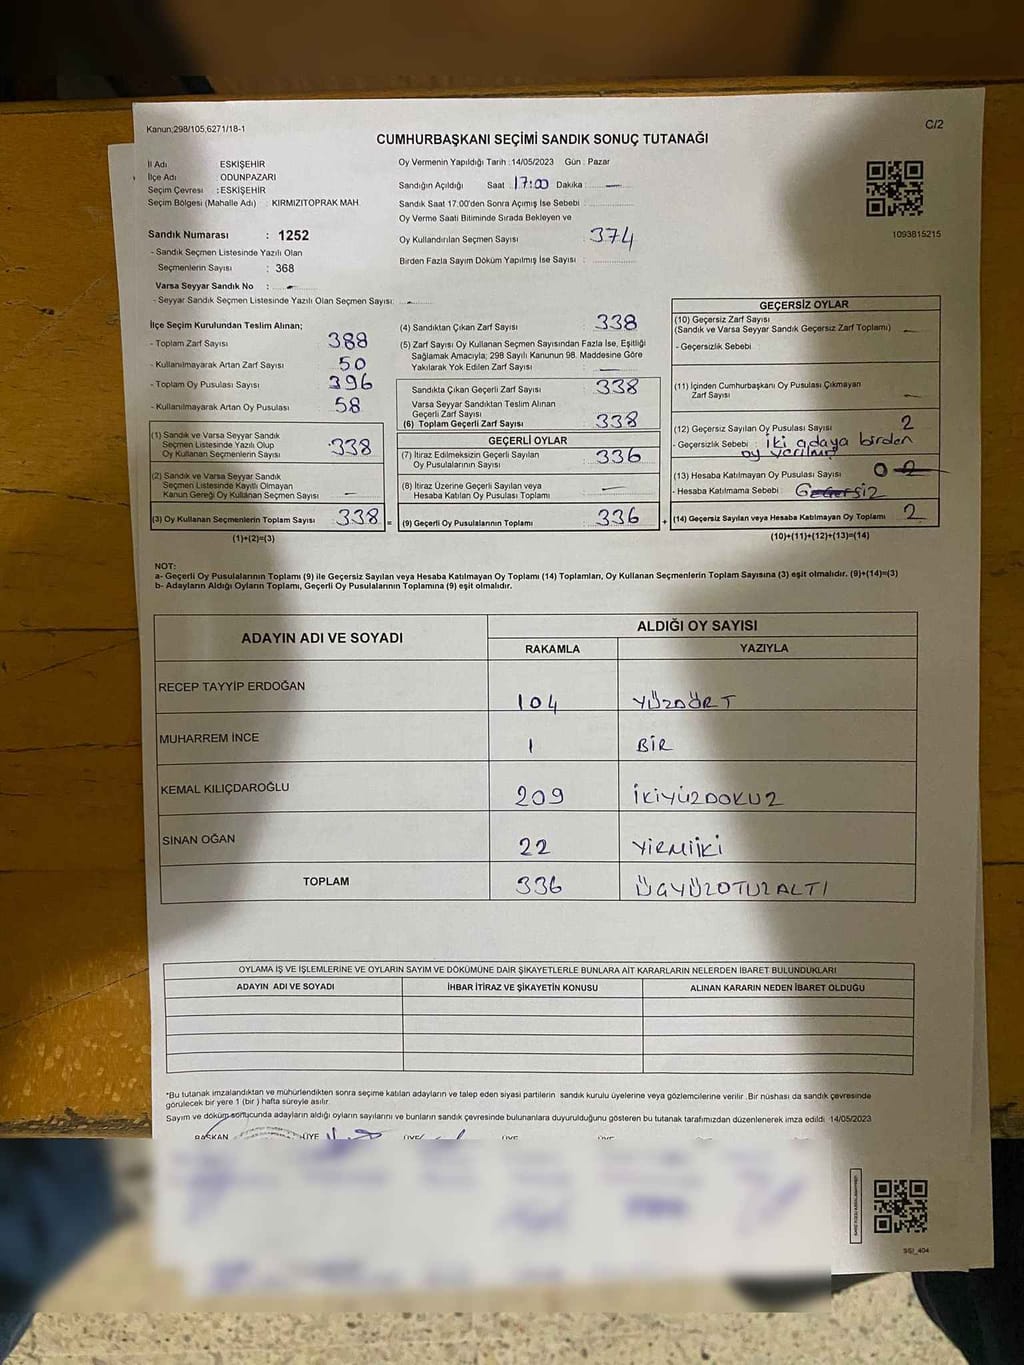 Kanun;298/105;6271/18-1
C/2
CUMHURBAŞKANI SEÇİMİ SANDIK SONUÇ TUTANAĞI
İl Adı ESKİŞEHİR
İlçe Adı ODUNPAZARI
Seçim Çevresi : ESKİŞEHİR
Seçim Bölgesi (Mahalle Adı) : KIRMIZITOPRAK MAH.
Sandık Numarası : 1252
- Sandık Seçmen Listesinde Yazılı Olan
Seçmenlerin Sayısı : 368
Varsa Seyyar Sandık No : -
- Seyyar Sandık Seçmen Listesinde Yazılı Olan Seçmen Sayısı: -
Oy Vermenin Yapıldığı Tarih : 14/05/2023 Gün : Pazar
Sandığın Açıldığı Saat : 17:00 Dakika : —
Sandık Saat 17:00'den Sonra Açılmış İse Sebebi :
Oy Verme Saati Bitiminde Sırada Bekleyen ve
Oy Kullandırılan Seçmen Sayısı : 374
Birden Fazla Sayım Döküm Yapılmış İse Sayısı :
1093815215
İlçe Seçim Kurulundan Teslim Alınan;
- Toplam Zarf Sayısı : 388
- Kullanılmayarak Artan Zarf Sayısı : 50
- Toplam Oy Pusulası Sayısı : 396
- Kullanılmayarak Artan Oy Pusulası : 58
(1) Sandık ve Varsa Seyyar Sandık
Seçmen Listesinde Yazılı Olup
Oy Kullanan Seçmenlerin Sayısı : 338
(2) Sandık ve Varsa Seyyar Sandık
Seçmen Listesinde Kayıtlı Olmayan
Kanun Gereği Oy Kullanan Seçmen Sayısı : —
(3) Oy Kullanan Seçmenlerin Toplam Sayısı : 338 =
(1)+(2)=(3)
(4) Sandıktan Çıkan Zarf Sayısı : 338
(5) Zarf Sayısı Oy Kullanan Seçmen Sayısından Fazla İse, Eşitliği
Sağlamak Amacıyla; 298 Sayılı Kanunun 98. Maddesine Göre
Yakılarak Yok Edilen Zarf Sayısı : —
Sandıkta Çıkan Geçerli Zarf Sayısı : 338
Varsa Seyyar Sandıktan Teslim Alınan
Geçerli Zarf Sayısı
(6) Toplam Geçerli Zarf Sayısı : 338
GEÇERLİ OYLAR
(7) İtiraz Edilmeksizin Geçerli Sayılan
Oy Pusulalarının Sayısı : 336
(8) İtiraz Üzerine Geçerli Sayılan veya
Hesaba Katılan Oy Pusulası Toplamı : —
(9) Geçerli Oy Pusulalarının Toplamı : 336 +
GEÇERSİZ OYLAR
(10) Geçersiz Zarf Sayısı
(Sandık ve Varsa Seyyar Sandık Geçersiz Zarf Toplamı) : —
- Geçersizlik Sebebi :
(11) İçinden Cumhurbaşkanı Oy Pusulası Çıkmayan
Zarf Sayısı : —
(12) Geçersiz Sayılan Oy Pusulası Sayısı : 2
- Geçersizlik Sebebi : iki adaya birden
oy verilmiş
(13) Hesaba Katılmayan Oy Pusulası Sayısı : 0 2
- Hesaba Katılmama Sebebi : Geçersiz
(14) Geçersiz Sayılan veya Hesaba Katılmayan Oy Toplamı : 2
(10)+(11)+(12)+(13)=(14)
NOT:
a- Geçerli Oy Pusulalarının Toplamı (9) ile Geçersiz Sayılan veya Hesaba Katılmayan Oy Toplamı (14) Toplamları, Oy Kullanan Seçmenlerin Toplam Sayısına (3) eşit olmalıdır. (9)+(14)=(3)
b- Adayların Aldığı Oyların Toplamı, Geçerli Oy Pusulalarının Toplamına (9) eşit olmalıdır.
ADAYIN ADI VE SOYADI
ALDIĞI OY SAYISI
RAKAMLA YAZIYLA
RECEP TAYYİP ERDOĞAN 104 YÜZDÖRT
MUHARREM İNCE 1 BİR
KEMAL KILIÇDAROĞLU 209 İKİYÜZDOKUZ
SİNAN OĞAN 22 YİRMİİKİ
TOPLAM 336 ÜÇYÜZOTUZALTI
OYLAMA İŞ VE İŞLEMLERİNE VE OYLARIN SAYIM VE DÖKÜMÜNE DAİR ŞİKAYETLERLE BUNLARA AİT KARARLARIN NELERDEN İBARET BULUNDUKLARI
ADAYIN ADI VE SOYADI İHBAR İTİRAZ VE ŞİKAYETİN KONUSU ALINAN KARARIN NEDEN İBARET OLDUĞU
*Bu tutanak imzalandıktan ve mühürlendikten sonra seçime katılan adayların ve talep eden siyasi partilerin sandık kurulu üyelerine veya gözlemcilerine verilir. Bir nüshası da sandık çevresinde
görülecek bir yere 1 (bir) hafta süreyle asılır.
Sayım ve döküm sonucunda adayların aldığı oyların sayılarını ve bunların sandık çevresinde bulunanlara duyurulduğunu gösteren bu tutanak tarafımızdan düzenlenerek imza edildi. 14/05/2023
BAŞKAN ÜYE ÜYE ÜYE ÜYE
SSI_404